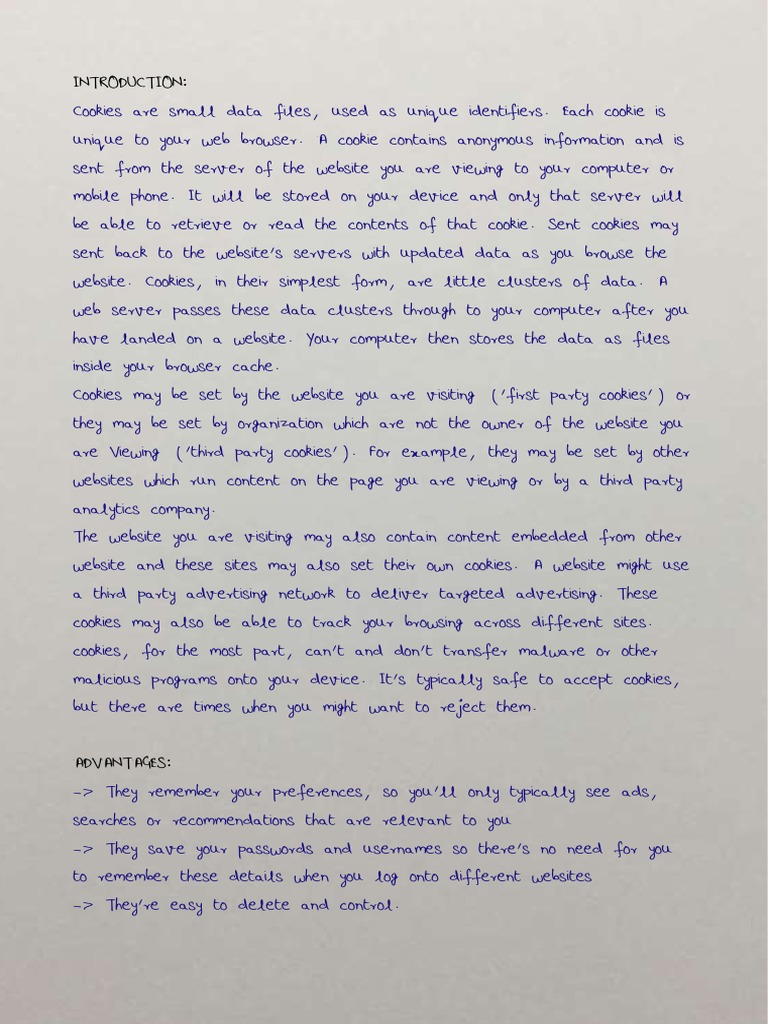 INTRODUCTION:
Cookies are small data files, used as unique identifiers. Each cookie is
unique to your web browser. A cookie contains anonymous information and is
sent from the server of the website you are viewing to your computer or
mobile phone. It will be stored on your device and only that server will
be able to retrieve or read the contents of that cookie. Sent cookies may
sent back to the website's servers with updated data as you browse the
website. Cookies, in their simplest form, are little clusters of data. A
web server passes these data clusters through to your computer after you
have landed on a website. Your computer then stores the data as files
inside your browser cache.
Cookies may be set by the website you are visiting ('first party cookies') or
they may be set by organization which are not the owner of the website you
are Viewing ('third party cookies'). For example, they may be set by other
websites which run content on the page you are viewing or by a third party
analytics company.
The website you are visiting may also contain content embedded from other
website and these sites may also set their own cookies. A website might use
a third party advertising network to deliver targeted advertising. These
cookies may also be able to track your browsing across different sites.
cookies, for the most part, can't and don't transfer malware or other
malicious programs onto your device. It's typically safe to accept cookies,
but there are times when you might want to reject them.
ADVANTAGES:
-> They remember your preferences, so you'll only typically see ads,
searches or recommendations that are relevant to you
-> They save your passwords and usernames so there's no need for you
to remember these details when you log onto different websites
-> They're easy to delete and control.